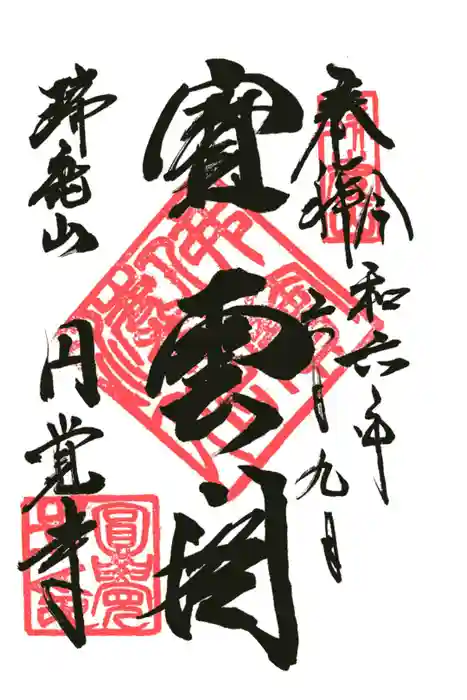 奉拝
令和六年
六 十九日
寶雲閣
瑞鹿山
円覚寺
圓覺